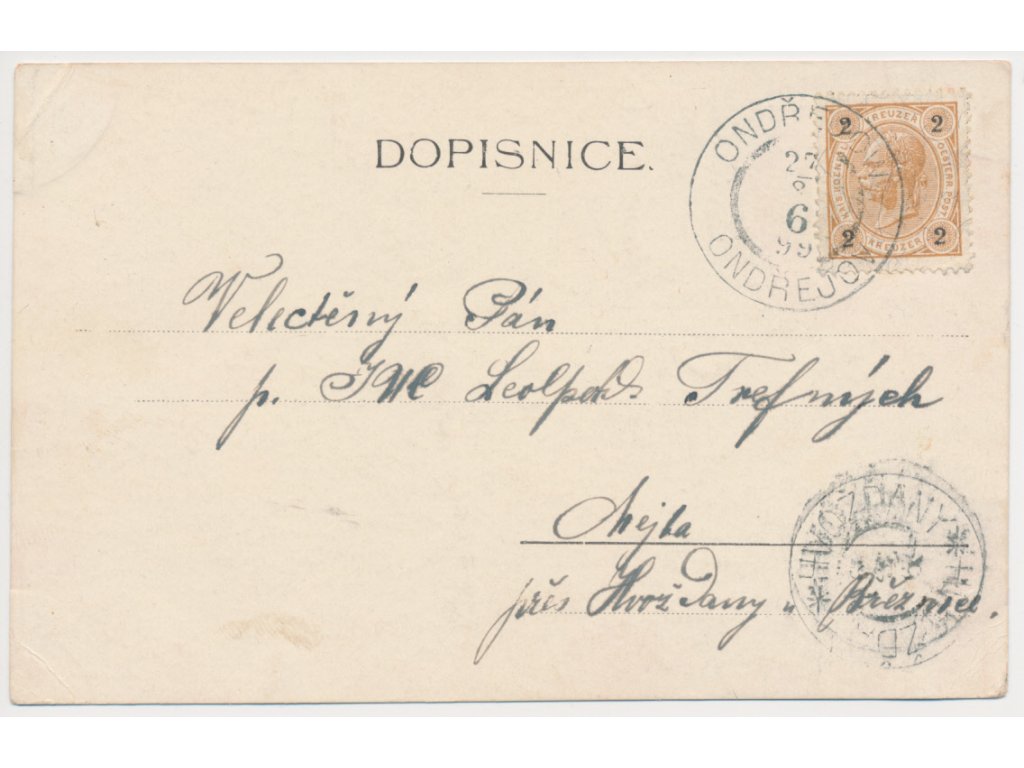 DOPISNICE.
ONDŘEJOV
27
6
99
ONDŘEJOV
2 KREUZER 2
OESTERR. POST
2 KREUZER 2
Velectěný Pán
p. Trefných
přes Hvožďany u Březnice.
HVOŽĎANY